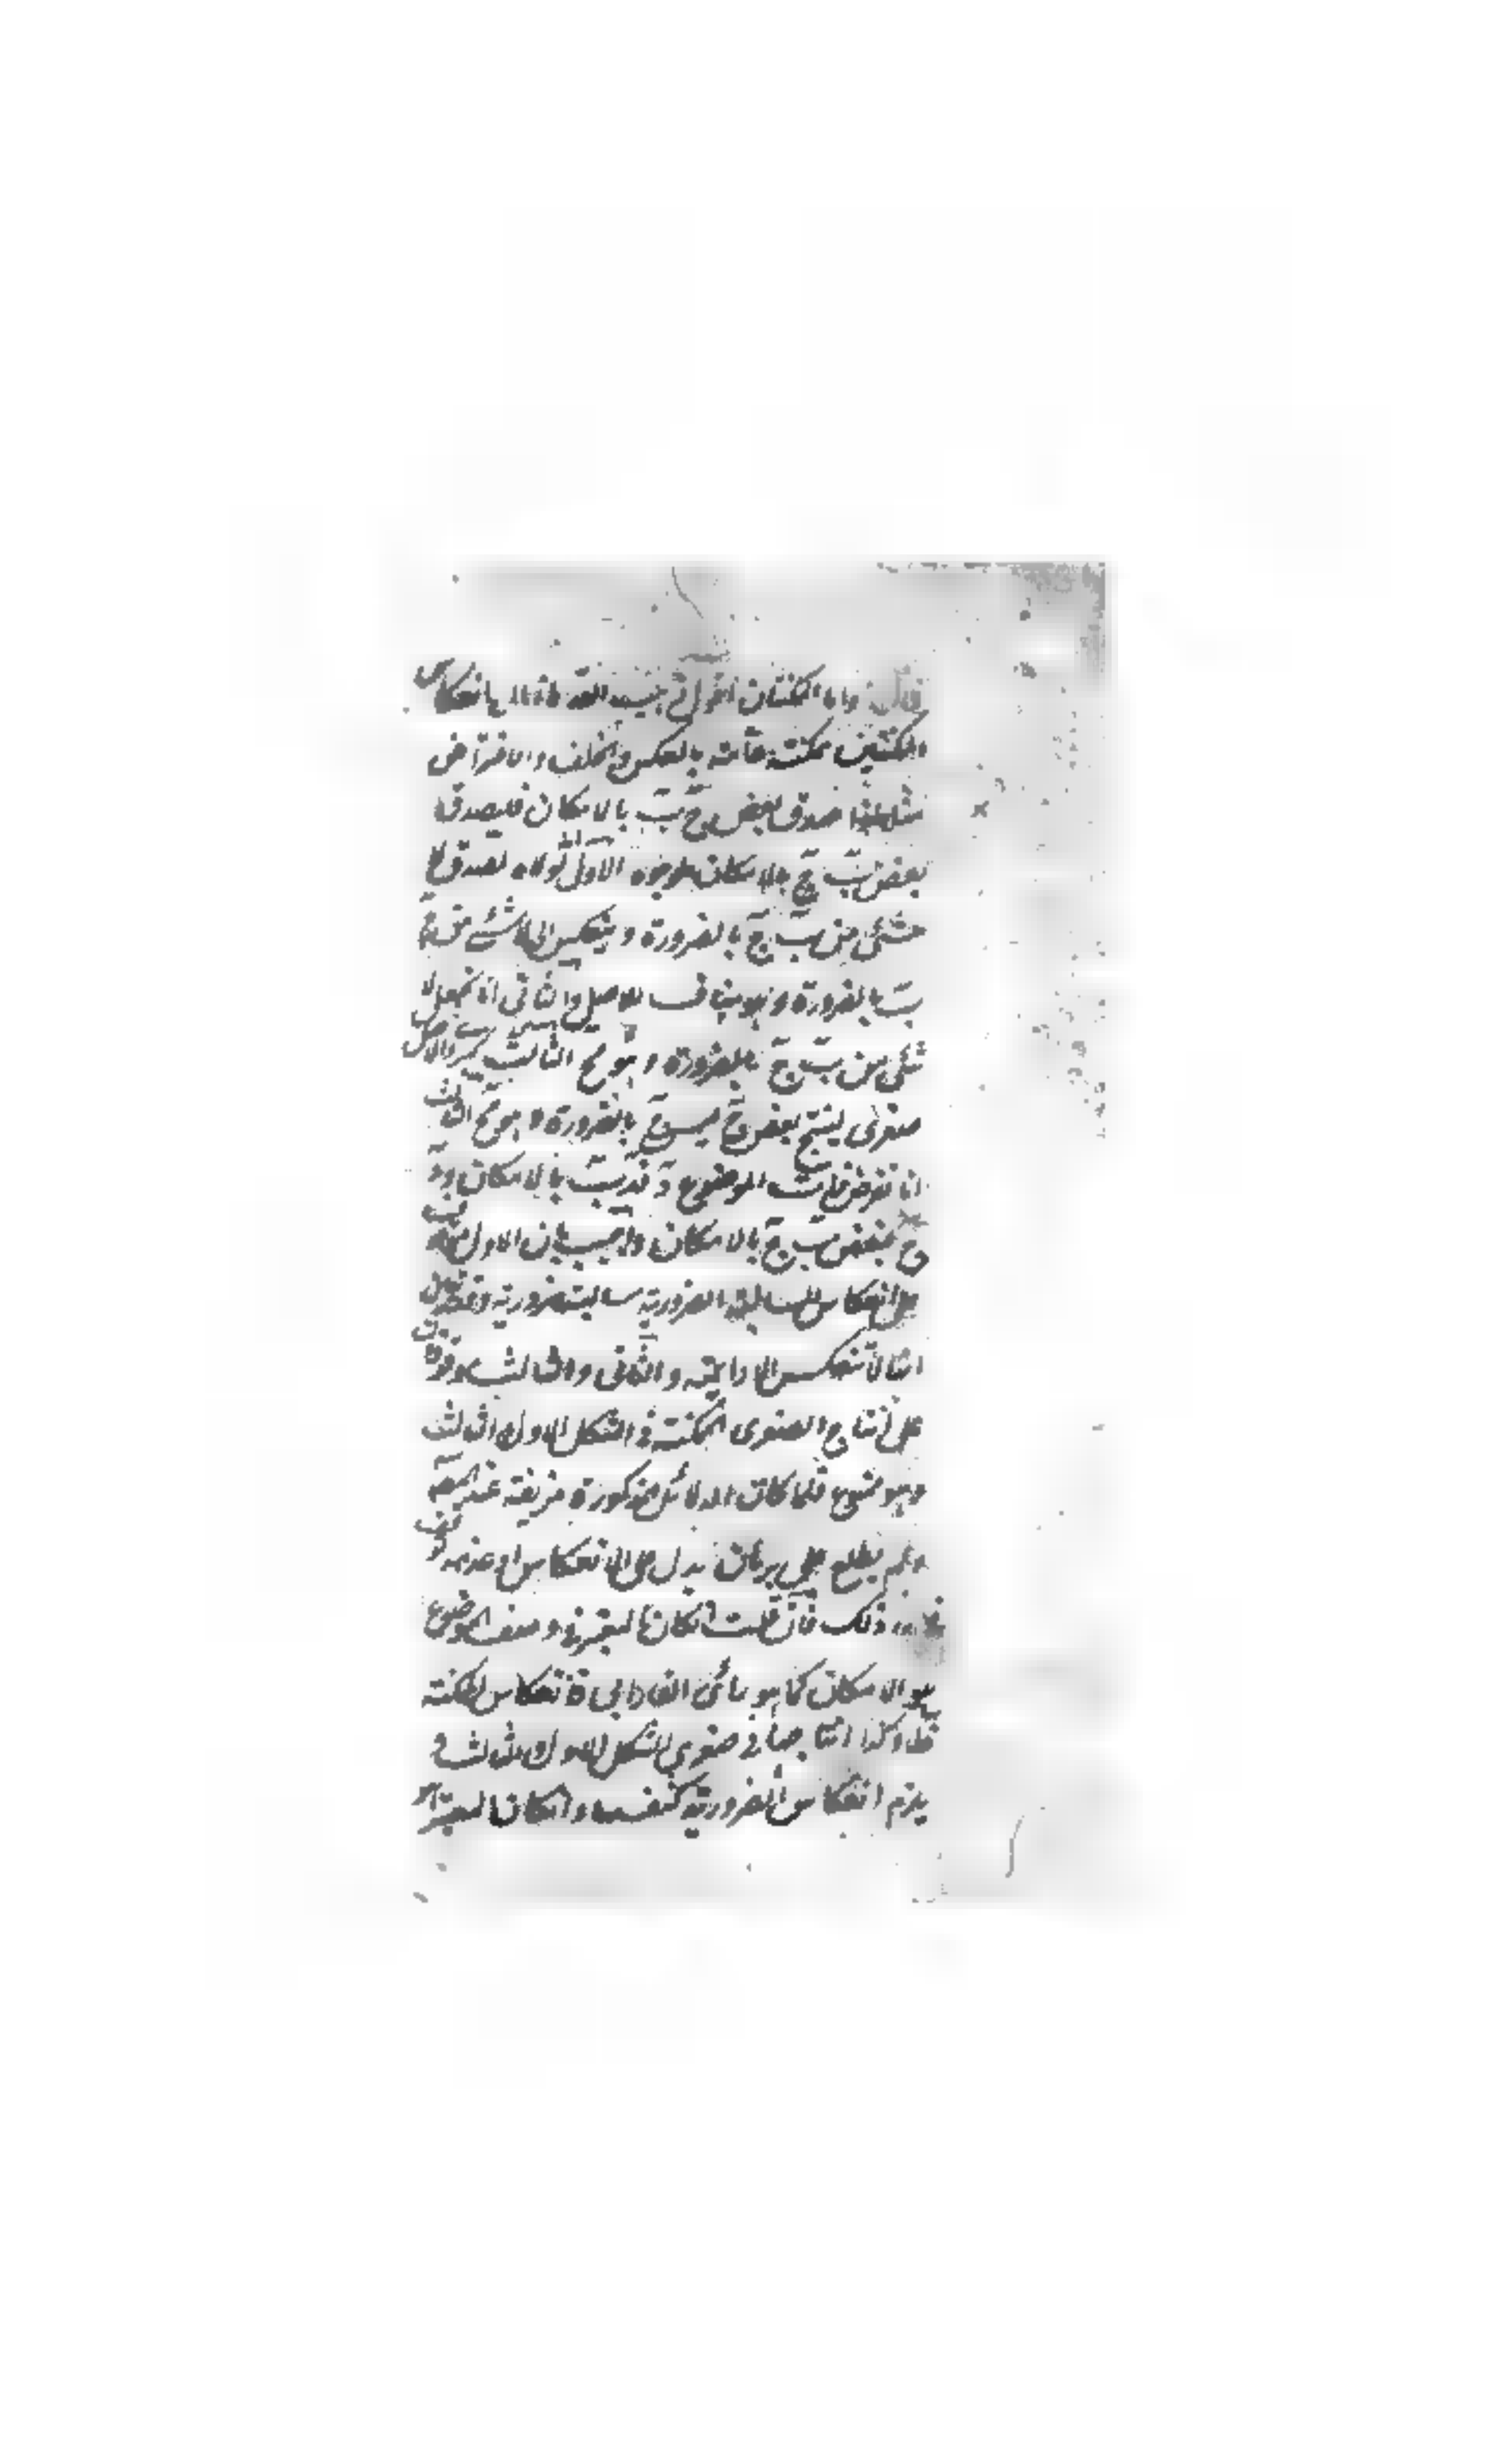 قال واما الممكنتان اقول ذهب القدماء الى انعكاس
الممكنتين ممكنة عامة بالعكس والخلف والافتراض
مثلا اذا صدق بعض ج ب بالامكان فليصدق
بعض ب ج بالامكان لوجوه الاول لولاه لصدق لا
شئ من ب ج بالضرورة وينعكس الى لا شئ من ج
ب بالضرورة وهو ينافى الاصل والثانى انا نجعل لا
شئ من ب ج بالضرورة مع الثالث الاصل
صغرى ينتج بعض ج ليس ج بالضرورة وهو مح الثالث
انا نفرض ذات الموضوع د فد ب بالامكان ود
ج فبعض ب ج بالامكان واجيب بان الاول
على انعكاس السالبة الضرورية سالبة ضرورية
انها لا تنعكس الا دائمة والثانى والثالث موقوف
على انتاج الصغرى الممكنة فى الشكل الاول والثالث
وهو ممنوع فلما كان الدلائل المذكورة مزيفة عند المص
ولم يطلع على برهان يدل على الانعكاس او عدمه توقف
فى ذلك فان قلت ان كان المعتبر فى وصف الموضوع
هو الامكان كما هو رأى الفارابى فانعكاس الممكنة
وكذا انتاجها فى صغرى الشكل الاول والثالث و
يلزم انعكاس الضرورية كنفسها وان كان المعتبر